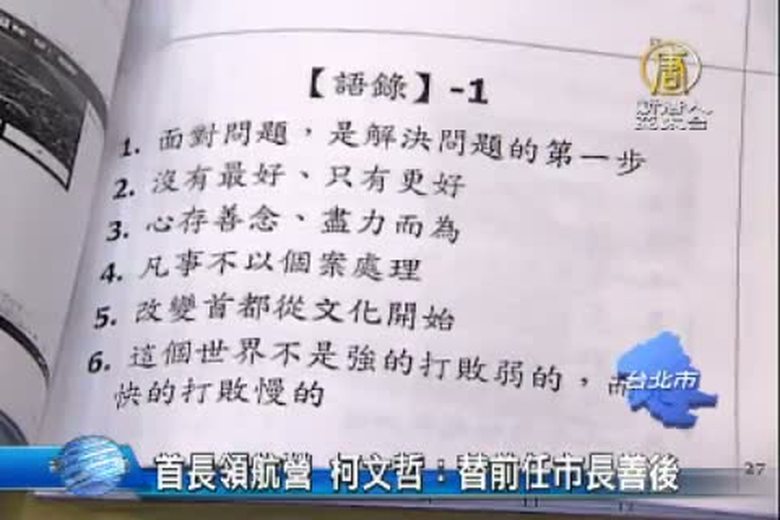 唐
新唐人
亞太台
【語錄】-1
1. 面對問題，是解決問題的第一步
2. 沒有最好、只有更好
3. 心存善念、盡力而為
4. 凡事不以個案處理
5. 改變首都從文化開始
6. 這個世界不是強的打敗弱的，而
快的打敗慢的
台北市
首長領航營 柯文哲：替前任市長善後
27